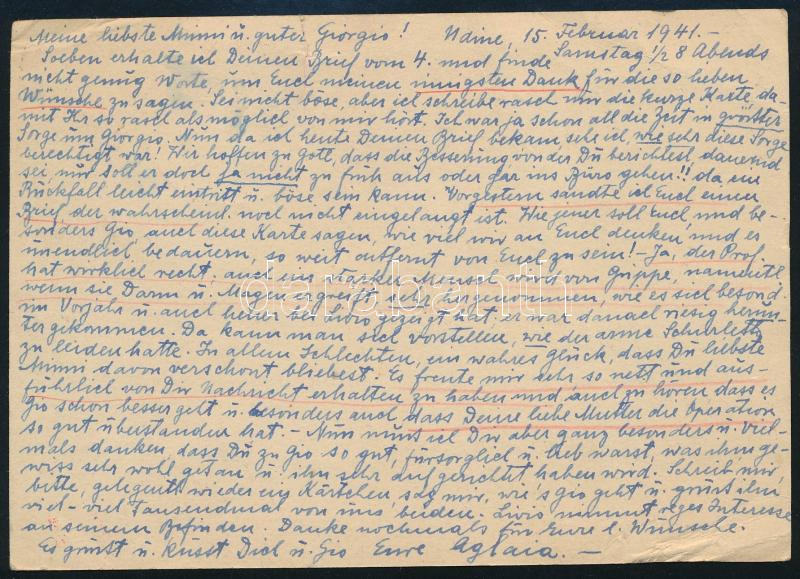 Meine liebste Mimmi u. guter Giorgio! Udine, 15. Februar 1941.-
Samstag ½ 8 Abends
Soeben erhalte ich Deinen Brief vom 4. und finde
nicht genug Worte, um Euch meinen innigsten Dank für die so lieben
Wünsche zu sagen. Sei nicht böse, aber ich schreibe rasch nur die kurze Karte, da-
mit Ihr so rasch als möglich von mir hört. Ich war ja schon all die Zeit in größter
Sorge um Giorgio. Nun da ich heute Deinen Brief bekam, sehe ich, wie sehr diese Sorge
berechtigt war! Wir hoffen zu Gott, dass die Besserung von der Du berichtest, dauernd
sei, nur soll er doch ja nicht zu früh aus oder gar ins Büro gehen!! da ein
Rückfall leicht eintritt u. böse sein kann. Vorgestern sandte ich Euch einen
Brief, der wahrscheinl. noch nicht eingelangt ist. Wie jener soll Euch, und be-
sonders Gio auch diese Karte sagen, wie viel wir an Euch denken, und es
unendlich bedauern, so weit entfernt von Euch zu sein! - Ja, der Prof.
hat wirklich recht, auch ein starker Mensch wird von Grippe, namentl.
wenn sie Darm u. Magen ergreift sehr hergenommen, wie es sich besond.
im Vorjahr u. auch heuer bei gezeigt hat. Es war danach riesig herun-
tergekommen. Da kann man sich vorstellen, wie der arme
zu leiden hatte. In allem Schlechten, ein wahres Glück, dass Du liebste
Mimmi davon verschont bliebest. Es freute mir sehr so nett und aus-
führlich von Dir Nachricht erhalten zu haben und auch zu hören dass es
Gio schon besser geht u. besonders auch, dass Deine liebe Mutter die Operation
so gut überstanden hat. - Nun muss ich Dir aber ganz besonders u. viel-
mals danken, dass Du zu Gio so gut, fürsorglich u. lieb warst, was ihm ge-
wiss sehr wohl getan u. ihn sehr aufgerichtet haben wird. Schreib mir,
bitte, gelegentl. wieder ein Kärtchen sag mir, wie's Gio geht u. grüss ihn
viel-viel Tausendmal von uns beiden. Livio nimmt reges Interesse
an seinem Befinden. Danke nochmals für Eure l. Wünsche.
Es grüsst u. küsst Dich u. Gio Eure Aglaia. -
darabanth